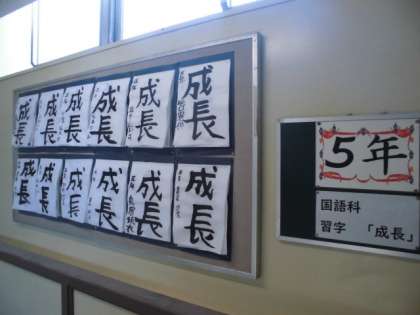 成長
成長
成長
成長
成長
成長
成長
成長
成長
成長
成長
成長
5年
国語科
習字 「成長」